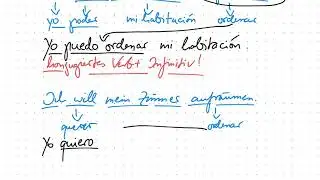 yo poder mi habitación ordenar
Yo puedo ordenar mi habitación.
konjugiertes Verb + Infinitiv!
Ich will mein Zimmer aufräumen.
querer ordenar
Yo quiero